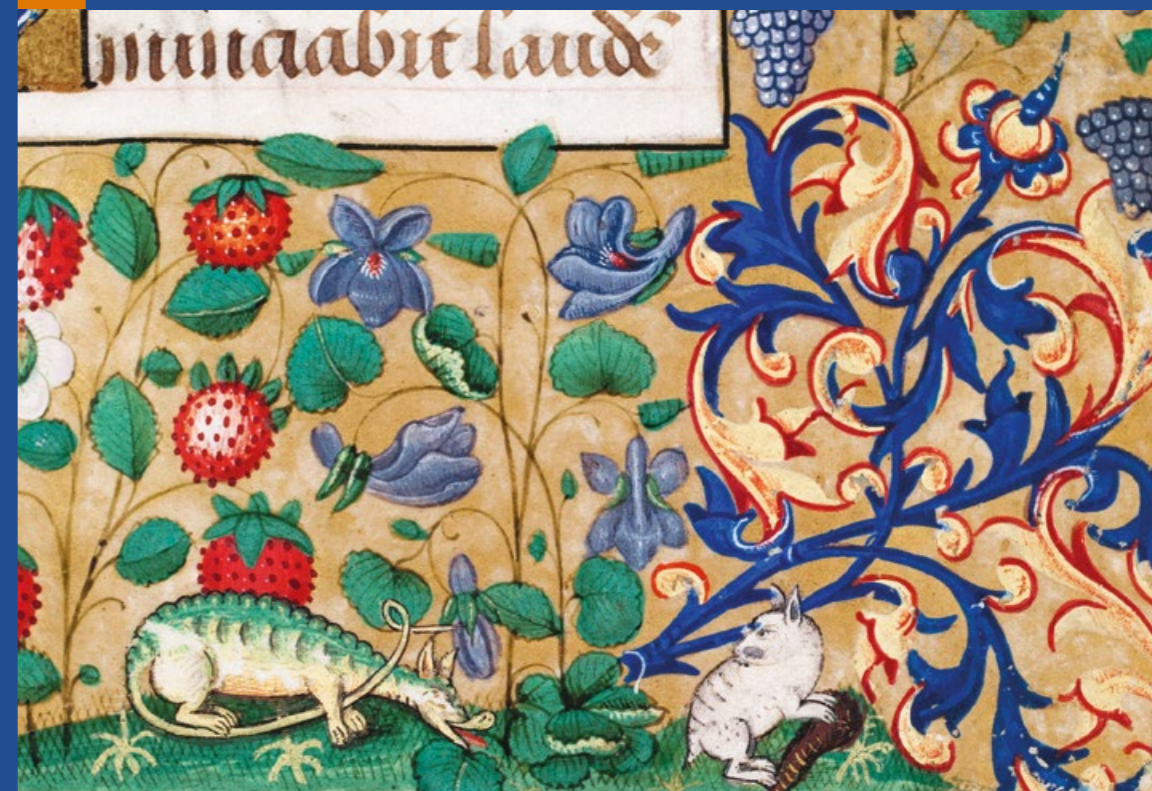 nunciabit laudẽ